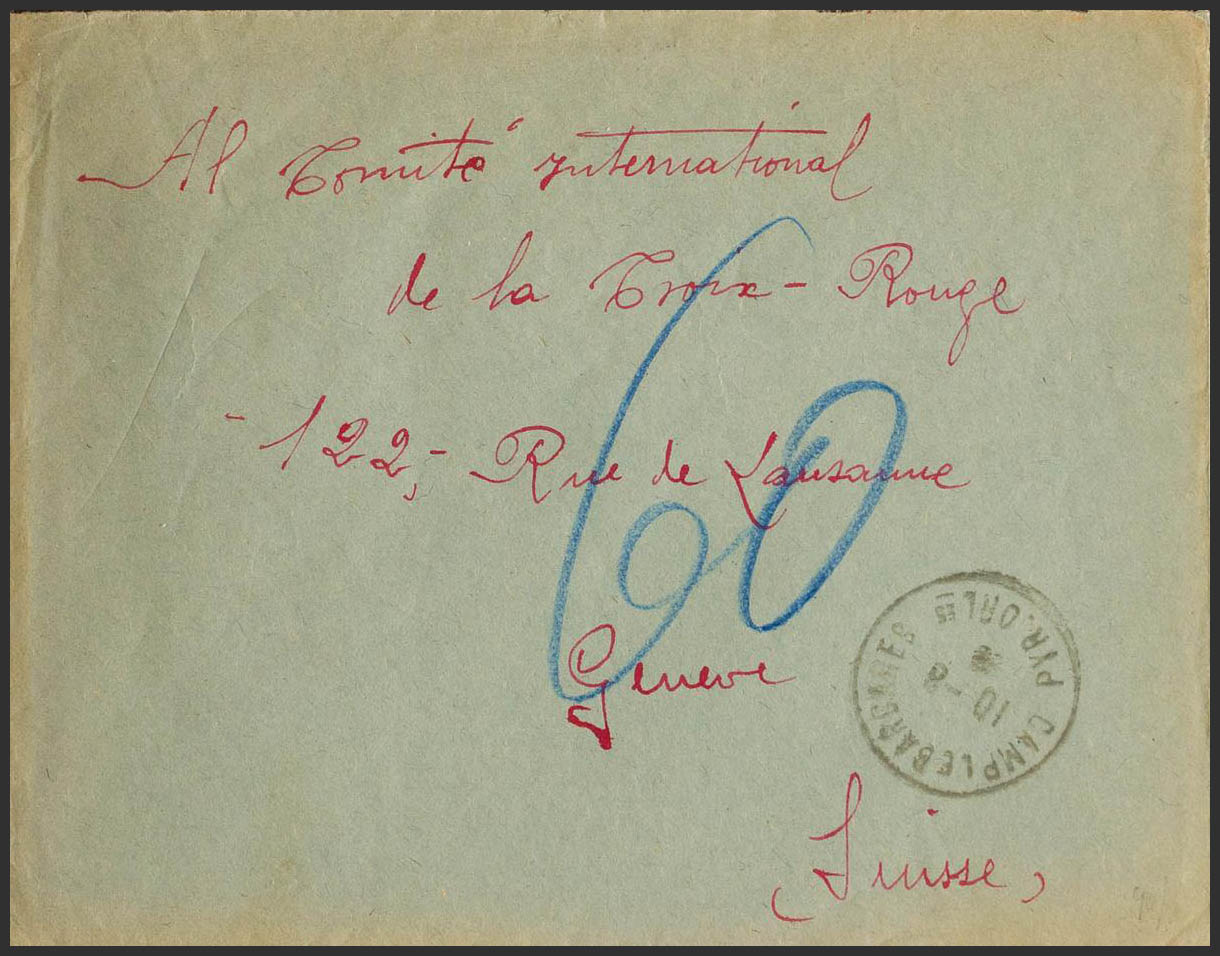 Al Comité international
de la Croix-Rouge
- 122,- Rue de Lausanne
60
Geneve
(Suisse)
CAMP LE BARCARES PYR. ORLES
10-8